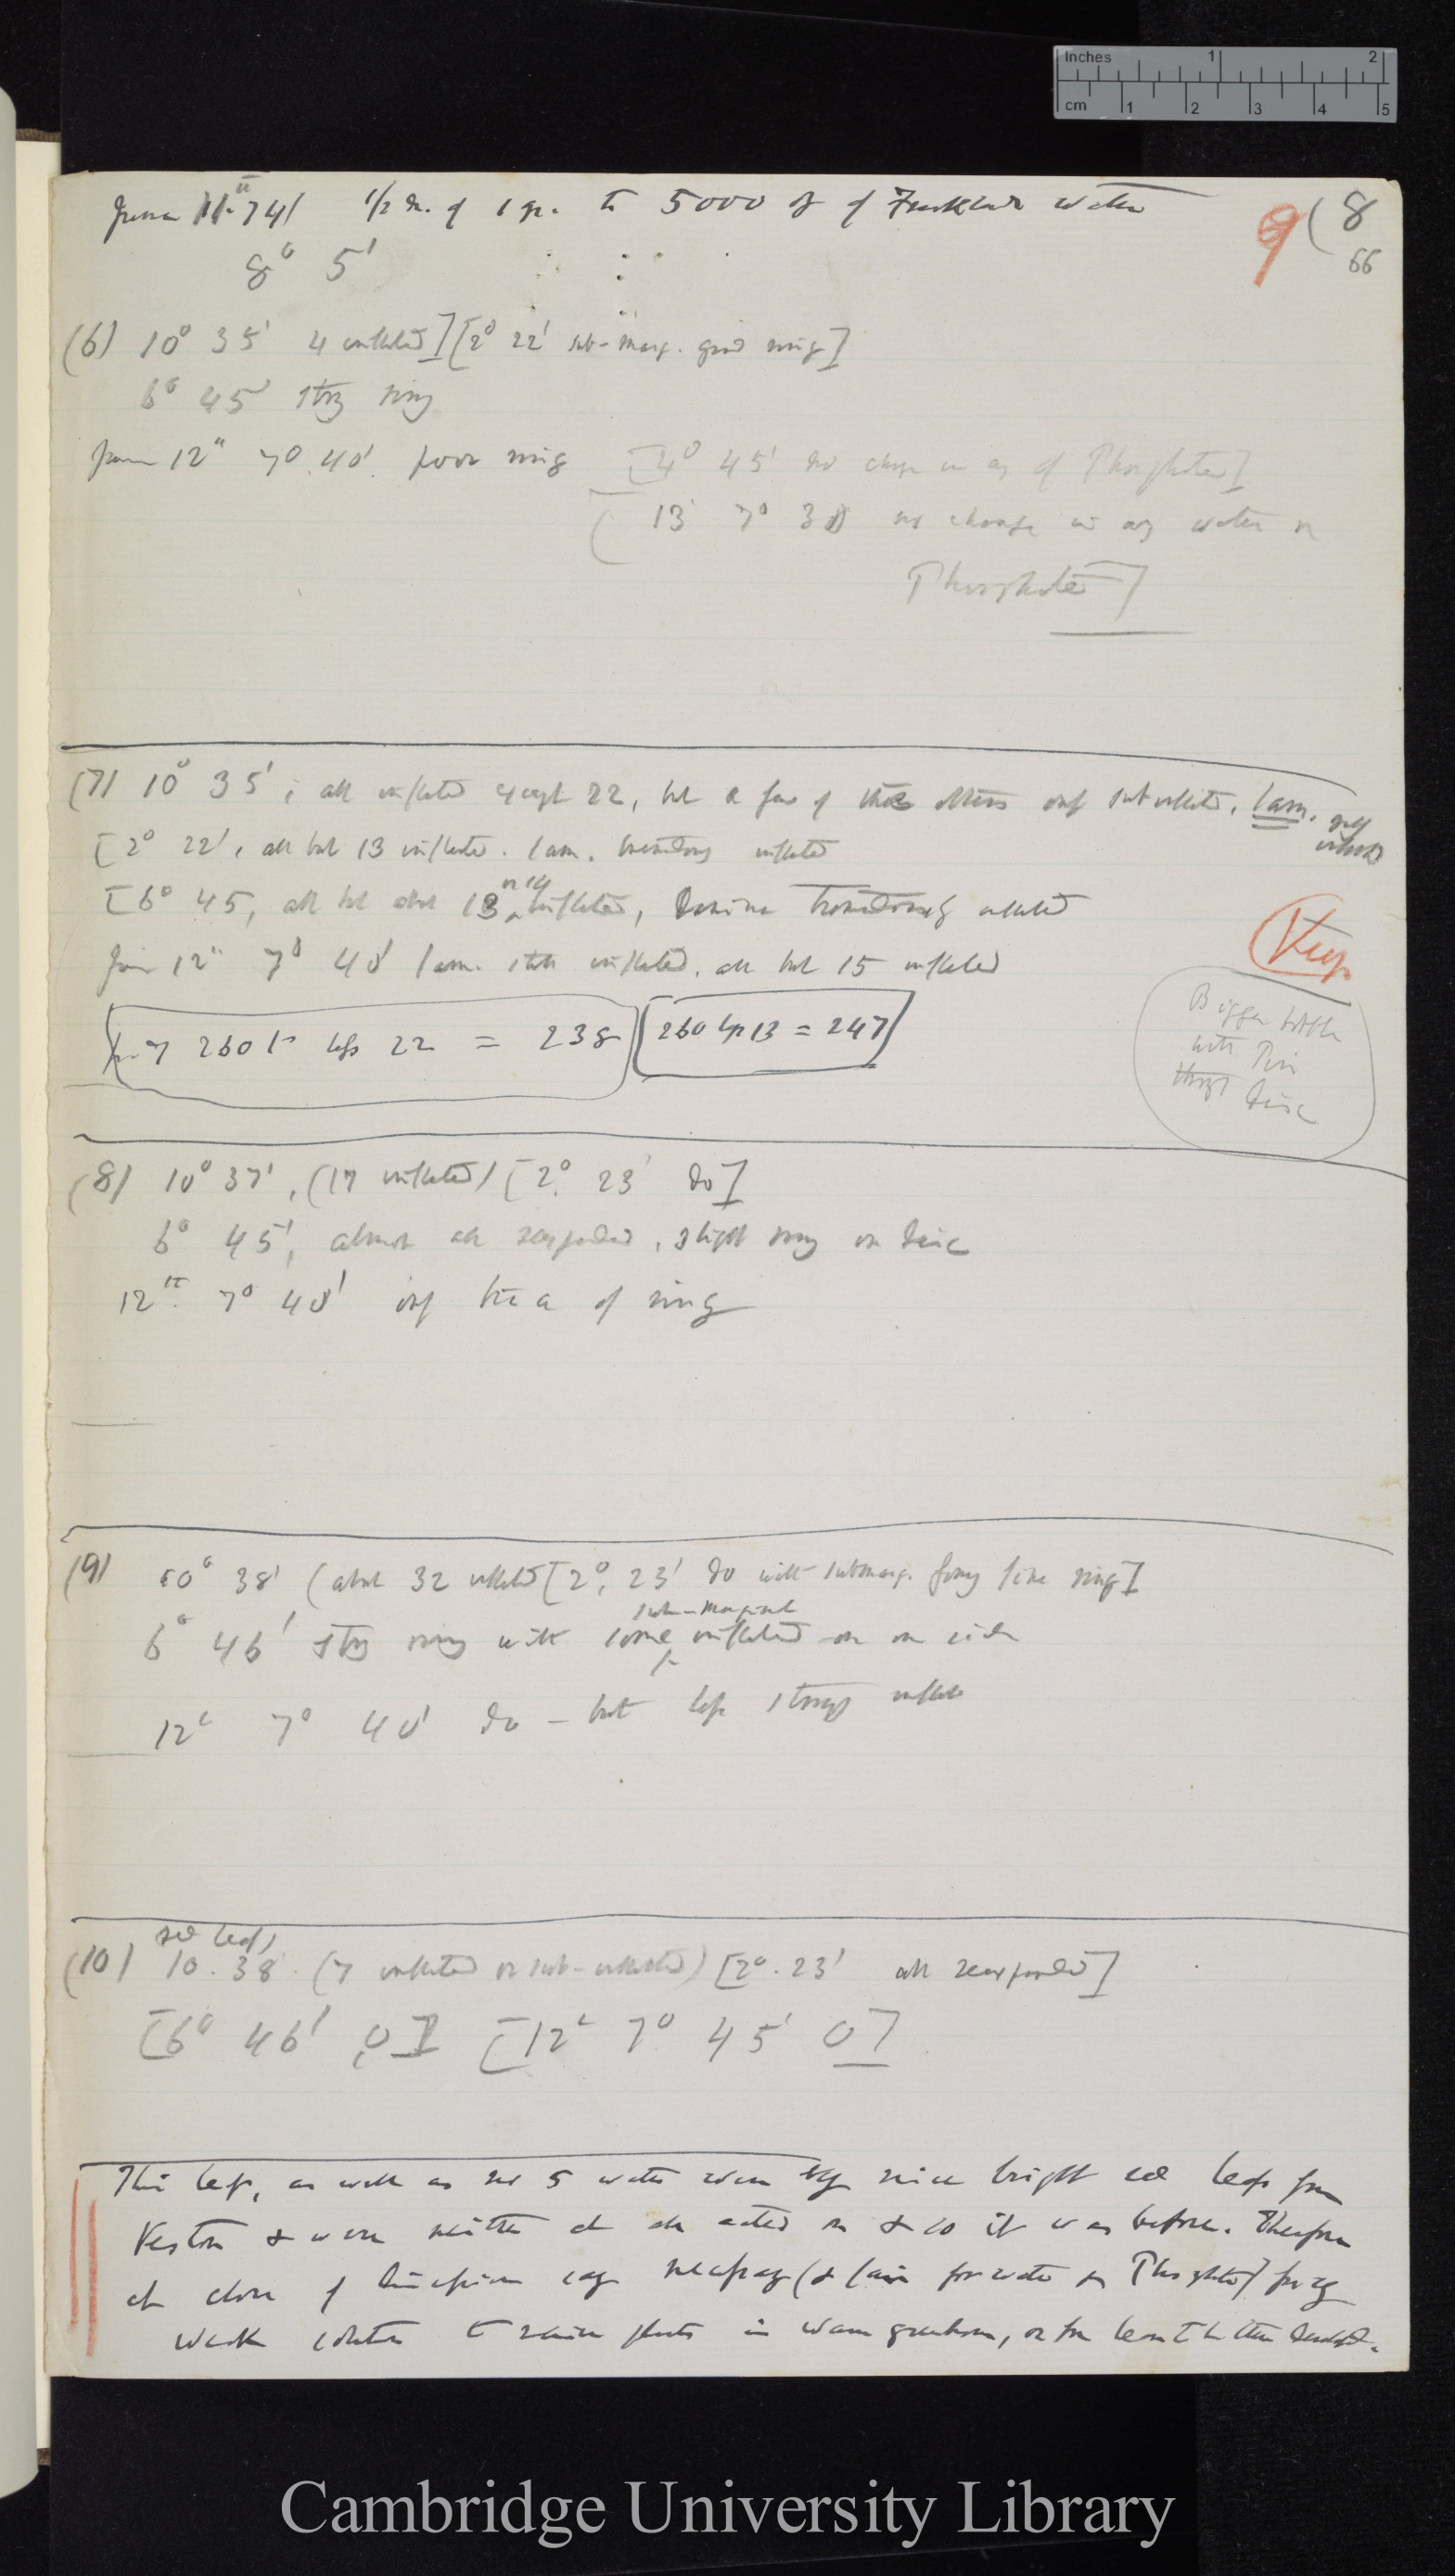 Inches 1 2
cm 1 2 3 4 5
June 11th 74/ 1/2 oz. of 1 gr. to 5000 of of Frankland water
9 (8
66
8° 5'
(6) 10° 35' 4 inflected] [2° 22' sub-marg. good ring]
6° 45' strong ring
June 12" 7° 40' poor ring [4° 45' no change in any of Phosphates]
[13 7° 30 no change in any water or
Phosphates]
(7) 10° 35'; all inflected except 22, but a few of these others only subinflected. Lam. inflected
[2° 22', all but 13 inflected. Lam. tremendously inflected
[6° 45, all but about 13 or 14 inflected, Lamina tremendously inflected
June 12" 7° 40' Lam. still inflected, all but 15 inflected
Keep
260 less 22 = 238 260 less 13 = 247
Bigger bottle
with Pin
through disc
(8) 10° 37', (17 inflected) [2° 23' do]
6° 45', almost all reexpanded, slight ring on disc
12th 7° 40' only trace of ring
(9) 10° 38' (about 32 inflected [2° 23' do with submarg. forming fine ring]
6° 46' strong ring with some sub-marginal inflected on one side
12th 7° 40' do – but less strongly inflected
red leaf
(10) 10. 38 (7 inflected or sub-inflected) [2°. 23' all reexpanded]
[6° 46' 0] [12th 7° 45' 0]
This leaf, as well as no 5 water were very nice bright red leaf from
Keston & were neither at all acted on & so it was before. Therefore
at close of discussion say necessary (& fair for water & Phosphates) for very
weak solution to raise plants in warm greenhouse, or for least to test